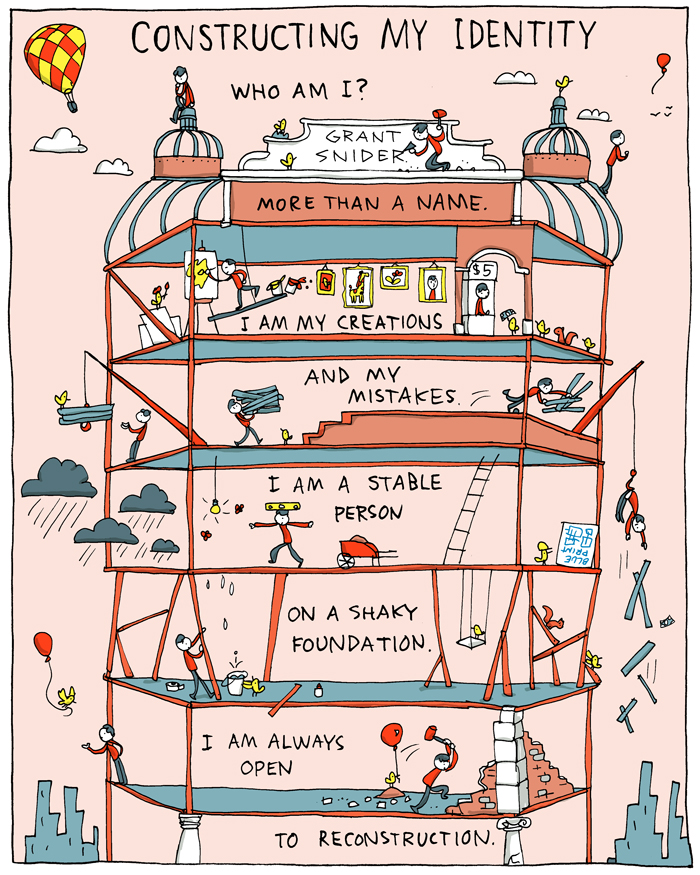 CONSTRUCTING MY IDENTITY
WHO AM I?
GRANT
SNIDER
MORE THAN A NAME.
$5
I AM MY CREATIONS
AND MY
MISTAKES.
I AM A STABLE
PERSON
BLUE
PRINT
ON A SHAKY
FOUNDATION.
I AM ALWAYS
OPEN
TO RECONSTRUCTION.